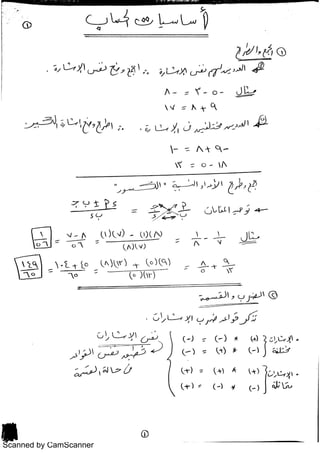 ①
أساسيات الحساب
① الجمع والطرح
العددين لهم نفس الإشارة ∴ اجمع وضع نفس الإشارة
مثال -٥ - ٣ = -٨
٩ + ٨ = ١٧
العددين مختلفين في الإشارة ∴ اطرح وضع إشارة الكبير
-٩ + ٨ = -١
١٨ - ٥ = ١٣
جمع وطرح الأعداد النسبية
توحيد المقامات
مثال ١/٧ - ١/٨ = ((٨)(١) - (٧)(١))/((٧)(٨)) = (٨ - ٧)/٥٦ = ١/٥٦
٩/١٣ + ٨/٥ = ((٩)(٥) + (١٣)(٨))/((١٣)(٥)) = (٤٥ + ١٠٤)/٦٥ = ١٤٩/٦٥
② الضرب والقسمة
تذكر قواعد ضرب الإشارات
إشارات مختلفة (+) * (-) = (-)
(-) * (+) = (-)
إشارات متماثلة (+) * (+) = (+)
(-) * (-) = (+)
نفس الإشارات
في حالة القسمة
①
Scanned by CamScanner